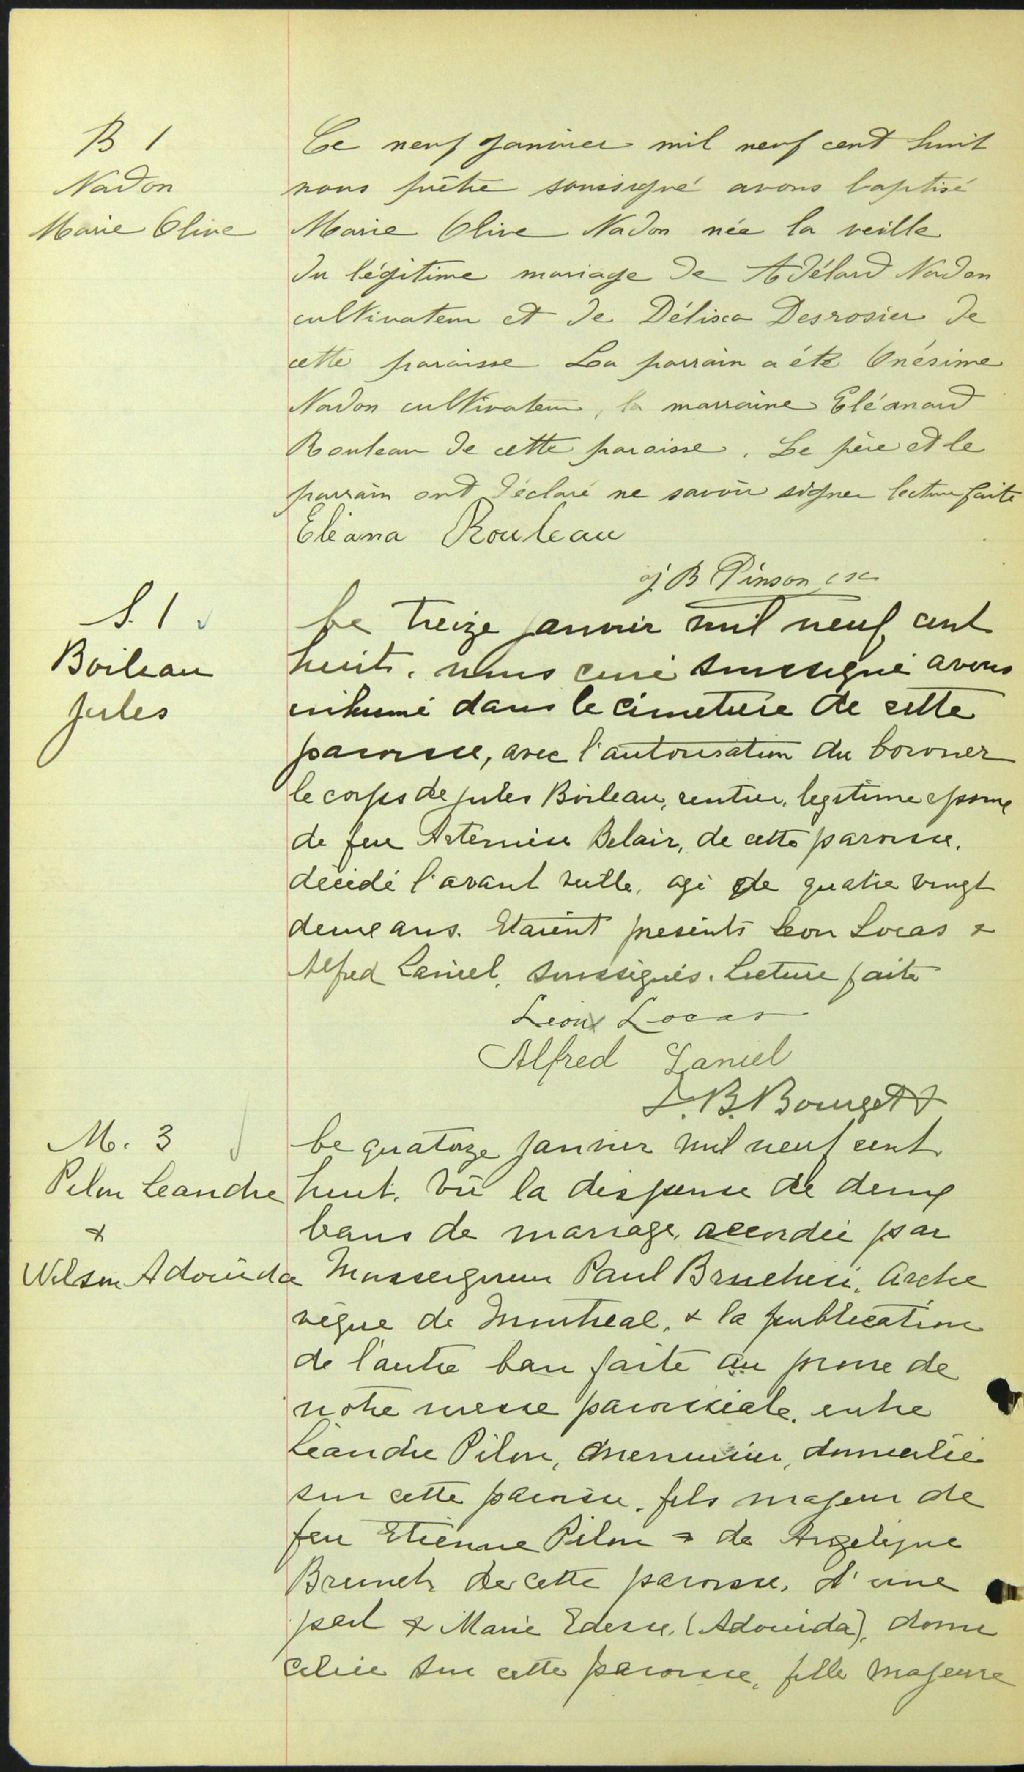 B 1
Nadon
Marie Olive
Ce neuf janvier mil neuf cent huit
nous prêtre soussigné avons baptisé
Marie Olive Nadon née la veille
du légitime mariage de Adélard Nadon
cultivateur et de Délisca Desrosier de
cette paroisse La parrain a été Onésime
Nadon cultivateur, la marraine Eléanard
Rouleau de cette paroisse. Le père et le
parrain ont déclaré ne savoir signer lecture faite
Eléana Rouleau
J. B Pinson
S. 1
Boileau
Jules
Le treize janvier mil neuf cent
huit, nous curé soussigné avons
inhumé dans le cimetière de cette
paroisse, avec l'autorisation du Coroner
le corps de Jules Boileau, rentier, legitime epoux
de feu Belair, de cette paroisse,
décédé l'avant veille, agé de quatre vingt
deux ans. Etaient presents Leon Lucas &
Alfred Laniel, soussignés. Lecture faite
Leon Locas
Alfred Laniel
J. B. Bourget
M. 3
Pilon Leandre
&
Wilson Adouilda
Le quatorze janvier mil neuf cent
huit. Vu la dispense de deux
bans de mariage, accordée par
Monseigneur Paul Bruchesi, Arche
vêque de Montreal, & la publication
de l'autre ban faite au prone de
notre messe paroissiale, entre
Léandre Pilon, menuisier, domicilié
sur cette paroisse, fils majeur de
feu Etienne Pilon & de Angelique
Brunet de cette paroisse, d'une
part & Marie (Adouilda), domi
ciliée sur cette paroisse, fille majeure